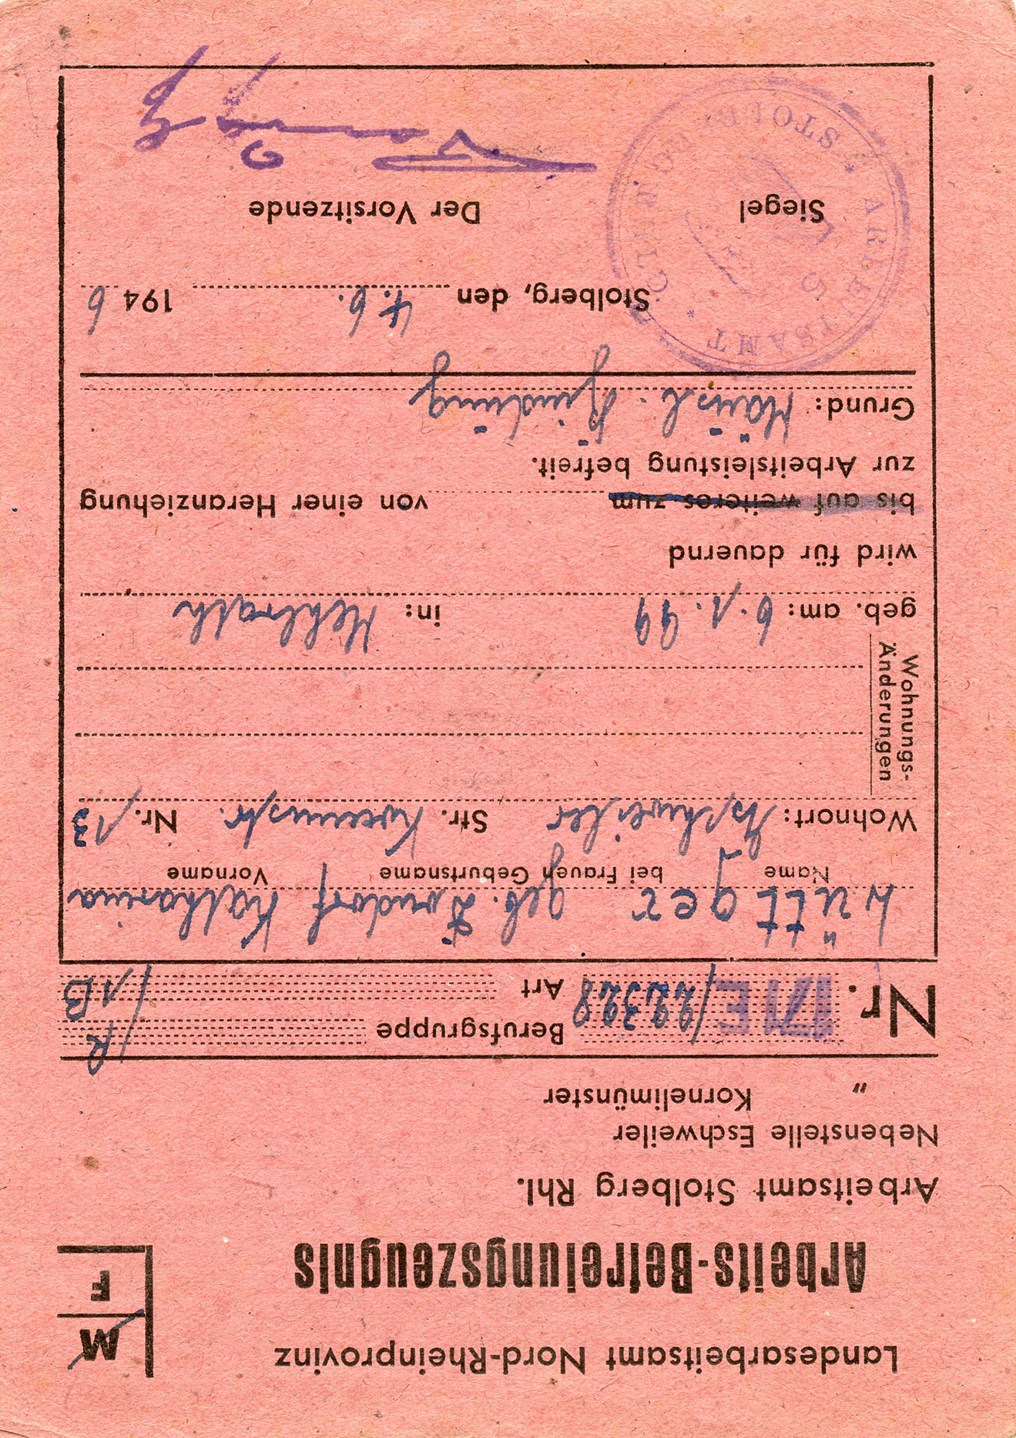 Landesarbeitsamt Nord-Rheinprovinz
M
F
Arbeits-Befreiungszeugnis
Arbeitsamt Stolberg Rhl.
Nebenstelle Eschweiler
" Kornelimünster
Nr. 171E/22328 Berufsgruppe /R
Art /1B
Lüttger geb. Dondorf Katharina
Name bei Frauen Geburtsname Vorname
Wohnort: Eschweiler Str. Nr. 13
Wohnungs-
Änderungen
geb. am: 6.1.99 in: Mehlrath
wird für dauernd
bis auf weiteres zum von einer Heranziehung
zur Arbeitsleistung befreit.
Grund: Häusl. Bindung
Stolberg, den 4.6. 1946
Siegel Der Vorsitzende
* ARBEITSAMT * STOLB
6